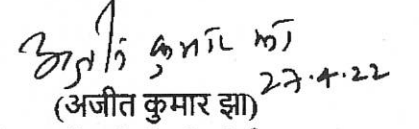 अजीत कुमार झा
27.4.22
(अजीत कुमार झा)